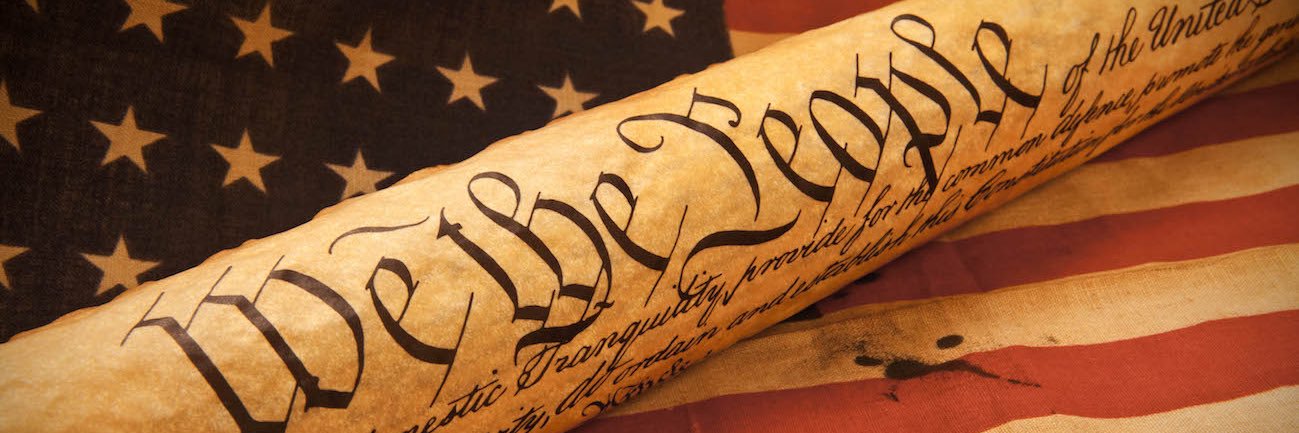 We the People of the United S
mestic Tranquility, provide for the common defence, promote the gene
rity, do ordain and establish this Constitution for the